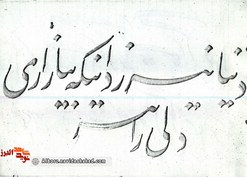 دنیا نیرزد اینکه بیازاری
دلی را
Alborz.navideshahed.com